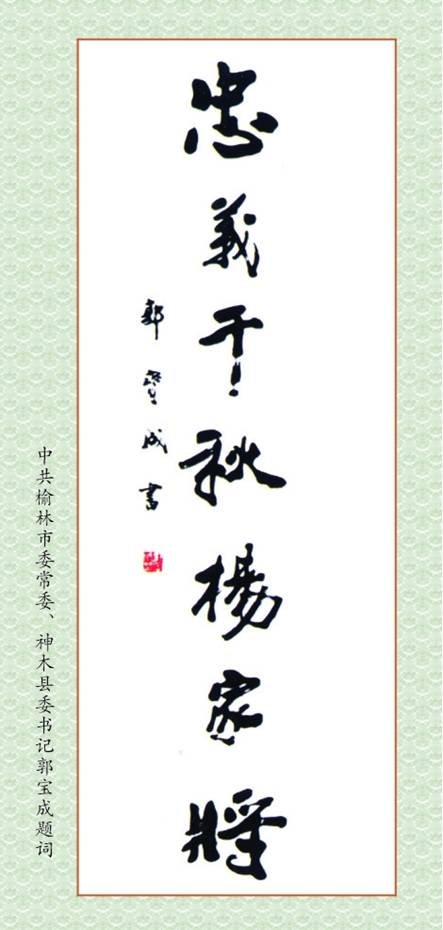 忠義千秋楊家將
郭寶成書
中共榆林市委常委、神木县委书记郭宝成题词